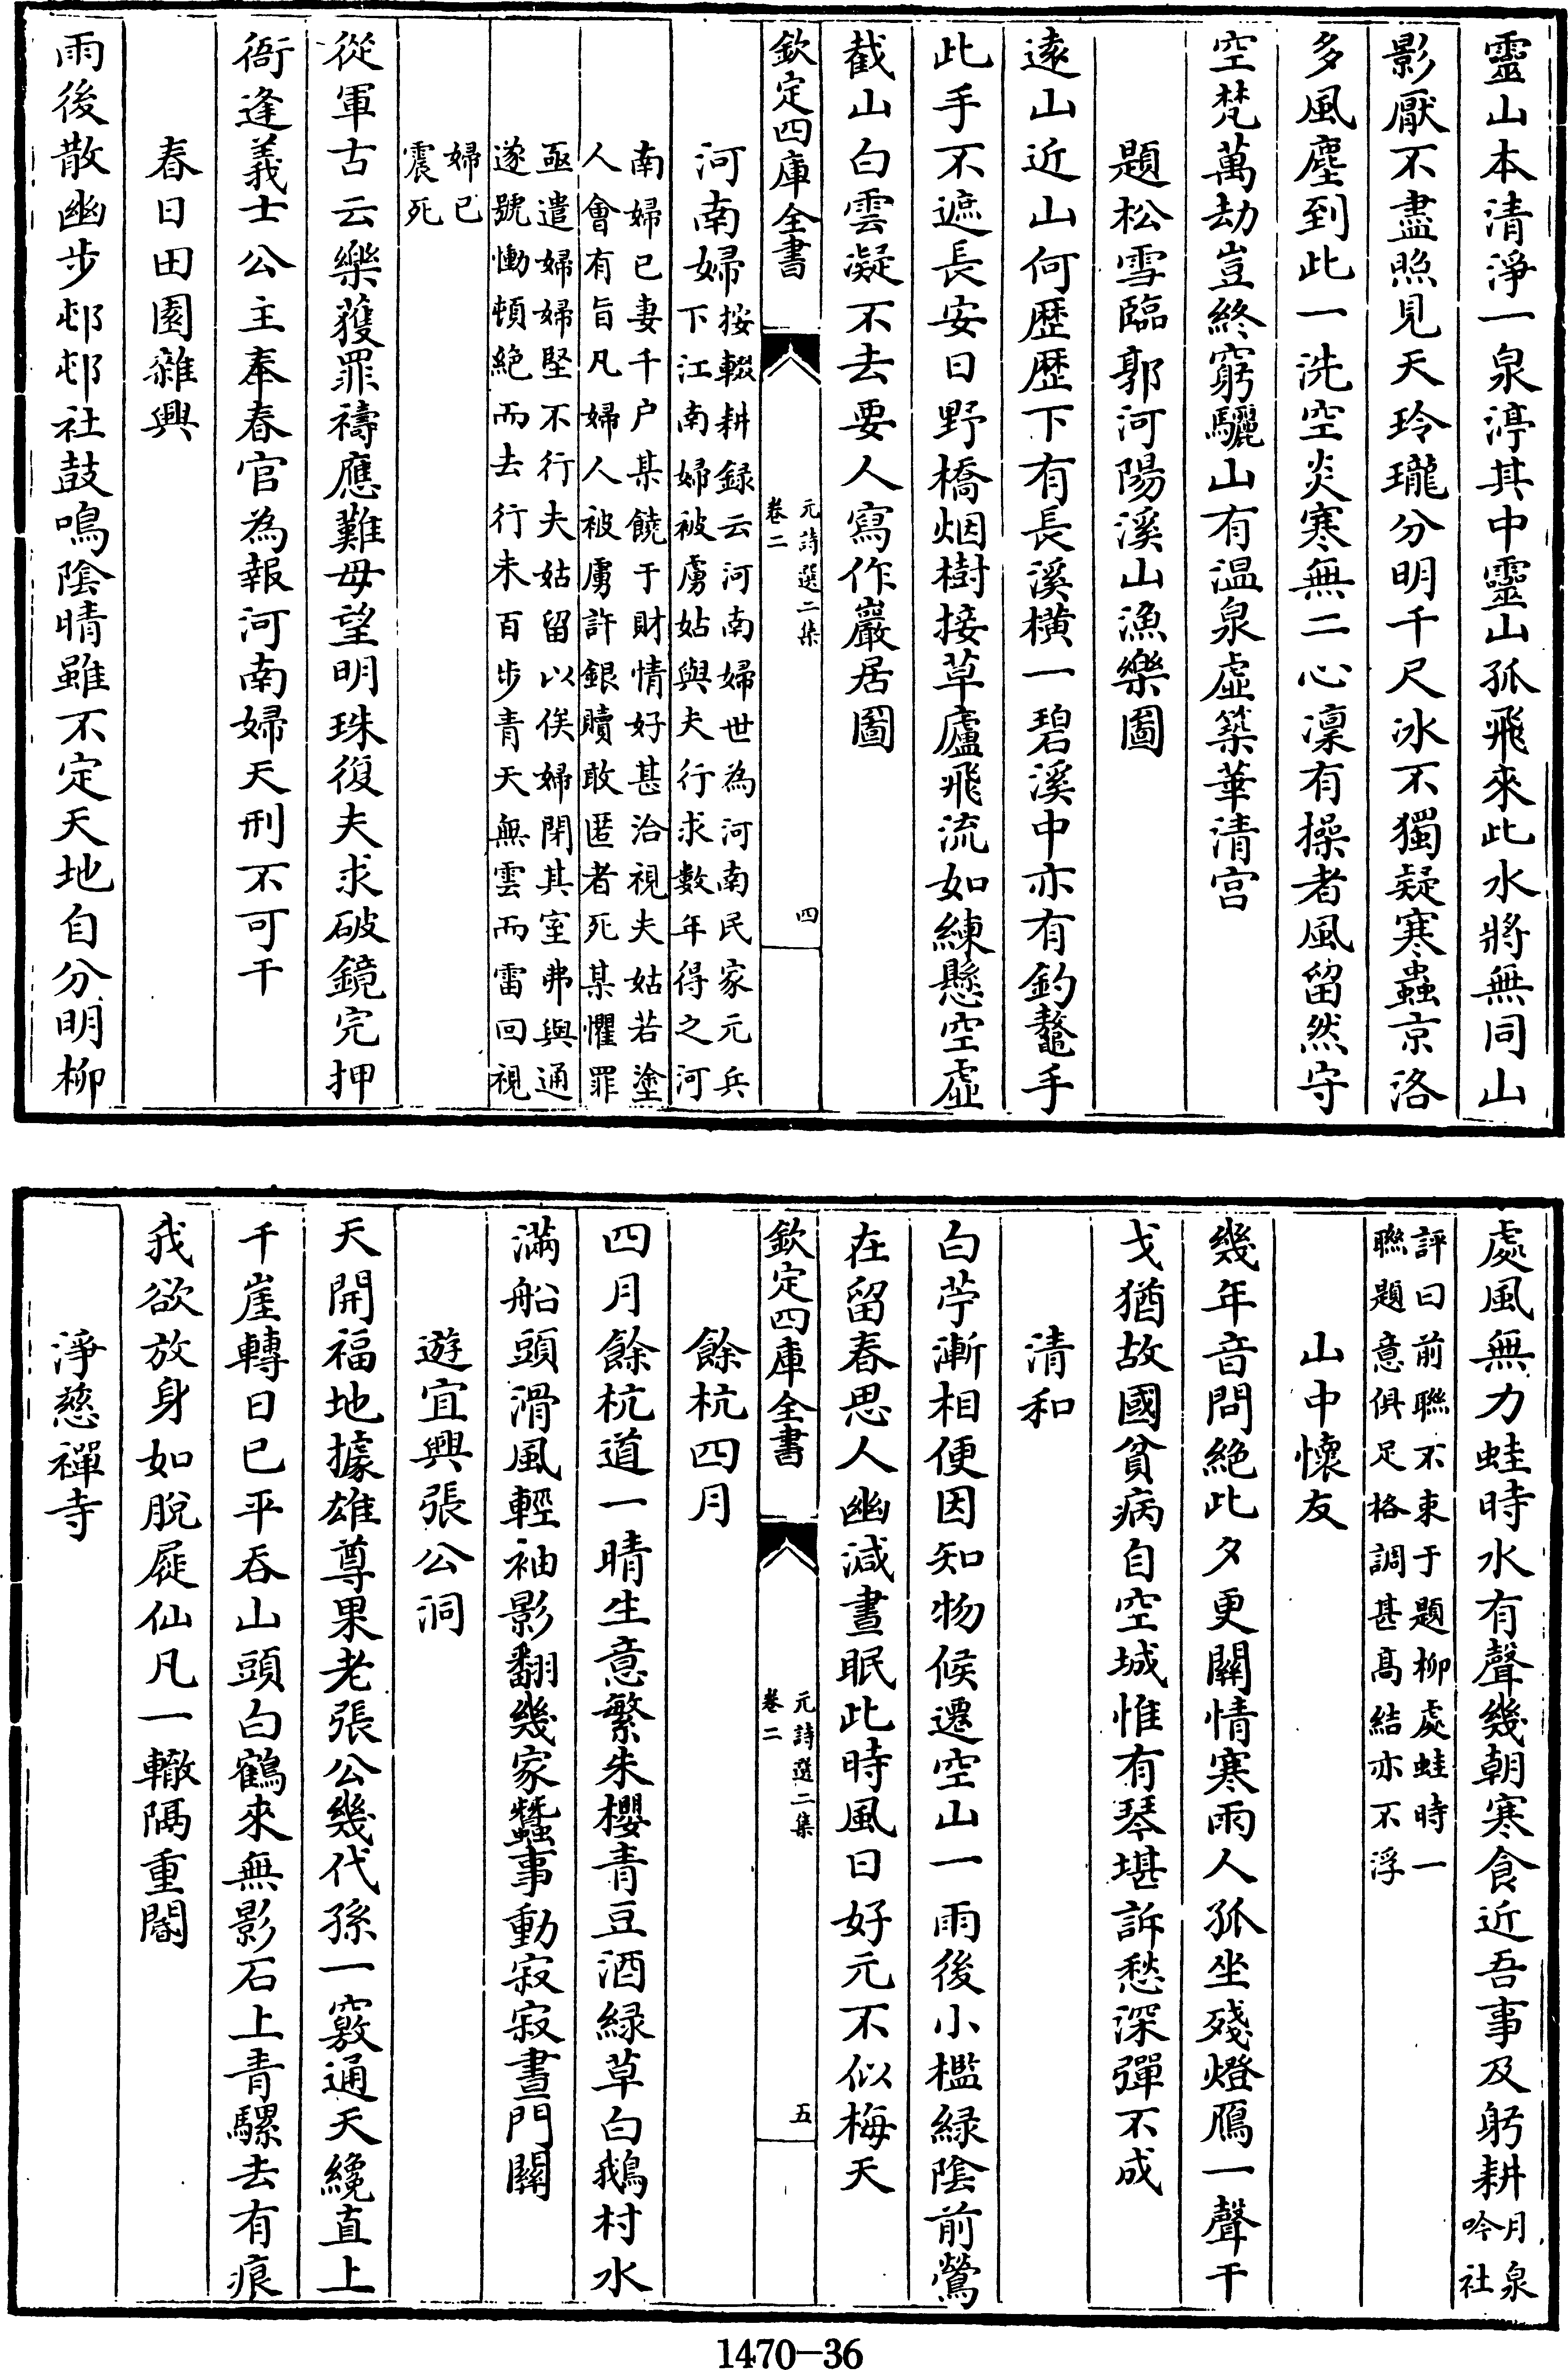 靈山本清淨一泉渟其中靈山孤飛來此水將無同山
影厭不盡照見天玲瓏分明千尺冰不獨疑寒蟲京洛
多風塵到此一洗空炎寒無二心凜有操者風留然守
空梵萬劫豈終窮驪山有温泉虛築華清宮
題松雪臨郭河陽溪山漁樂圖
遠山近山何歴歴下有長溪橫一碧溪中亦有釣鼇手
此手不遮長安日野橋烟樹接草廬飛流如練懸空虛
截山白雲凝不去要人寫作巖居圖
欽定四庫全書
元詩選二集
卷二
四
河南婦
按輟耕録云河南婦世為河南民家元兵
下江南婦被虜姑與夫行求數年得之河
南婦已妻千户某饒于財情好甚洽視夫姑若塗
人會有旨凡婦人被虜許銀贖敢匿者死某懼罪
亟遣婦婦堅不行夫姑留以俟婦閉其室弗與通
遂號慟頓絶而去行未百步青天無雲而雷回視
婦已
震死
從軍古云樂獲罪禱應難母望明珠復夫求破鏡完押
衙逢義士公主奉春官為報河南婦天刑不可干
春日田園雜興
雨後散幽步邨邨社鼓鳴陰晴雖不定天地自分明柳
處風無力蛙時水有聲幾朝寒食近吾事及躬耕
月泉
吟社
評曰前聯不束于題柳處蛙時一
聯題意俱足格調甚髙結亦不浮
山中懷友
幾年音問絶此夕更關情寒雨人孤坐殘燈鴈一聲干
戈猶故國貧病自空城惟有琴堪訴愁深彈不成
清和
白苧漸相便因知物候遷空山一雨後小檻緑陰前鶯
在留春思人幽減晝眠此時風日好元不似梅天
欽定四庫全書
元詩選二集
卷二
五
餘杭四月
四月餘杭道一晴生意繁朱櫻青豆酒緑草白鵝村水
滿船頭滑風輕袖影翻幾家蠶事動寂寂晝門關
遊宜興張公洞
天開福地據雄尊果老張公幾代孫一竅通天纔直上
千崖轉日已平吞山頭白鶴來無影石上青騾去有痕
我欲放身如脫屣仙凡一轍隔重閽
淨慈禪寺
1470—36